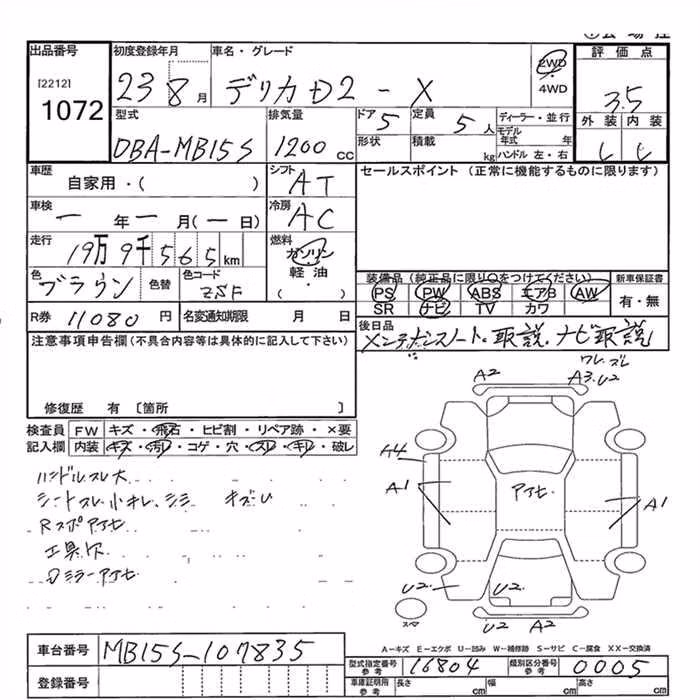 出品番号 初度登録年月 車名・グレード 2WD 評価点
[2212] 23 8月 デリカD2-X 4WD 3.5
1072 型式 排気量 ドア 5 定員 5人 ディーラー・並行 外装 内装
DBA-MB15S 1200cc 形状 積載 kg モデル年式 年 ハンドル 左・右 C C
車歴 シフト AT セールスポイント (正常に機能するものに限ります)
自家用・( )
車検 冷房 AC
ー年ー月(ー日)
走行 燃料 ガソリン
19万9千565km 軽油
色 ブラウン 色替 色コード ZSF ・( ) 装備品(純正品に限り〇をつけてください) 新車保証書
PS PW ABS エアB AW 有・無
R券 11080円 名変通知期限 月 日 SR ナビ TV カワ
注意事項申告欄(不具合内容等は具体的に記入して下さい) 後日品 メンテナンスノート、取説、ナビ取説
修復歴 有 〔箇所 〕
検査員 FW キズ・飛石・ヒビ割・リペア跡・×要
記入欄 内装 キズ・汚レ・コゲ・穴・スレ・キレ・破レ
ワレ、ズレ
A2 A3、U2
ハンドルスレ大 A4
シートスレ小キレ、シミ キズU A1 アセ A1
Rスポアセ
工具欠
Dミラーアセ
U2 U2
スペア U2 A2
A-キズ E-エクボ U-凹み W-補修跡 S-サビ C-腐食 XX-交換済
車台番号 MB15S-107835
型式指定番号 参考 16804 類別区分番号 参考 0005
登録番号 車庫証明用 参考 長さ cm 幅 cm 高さ cm